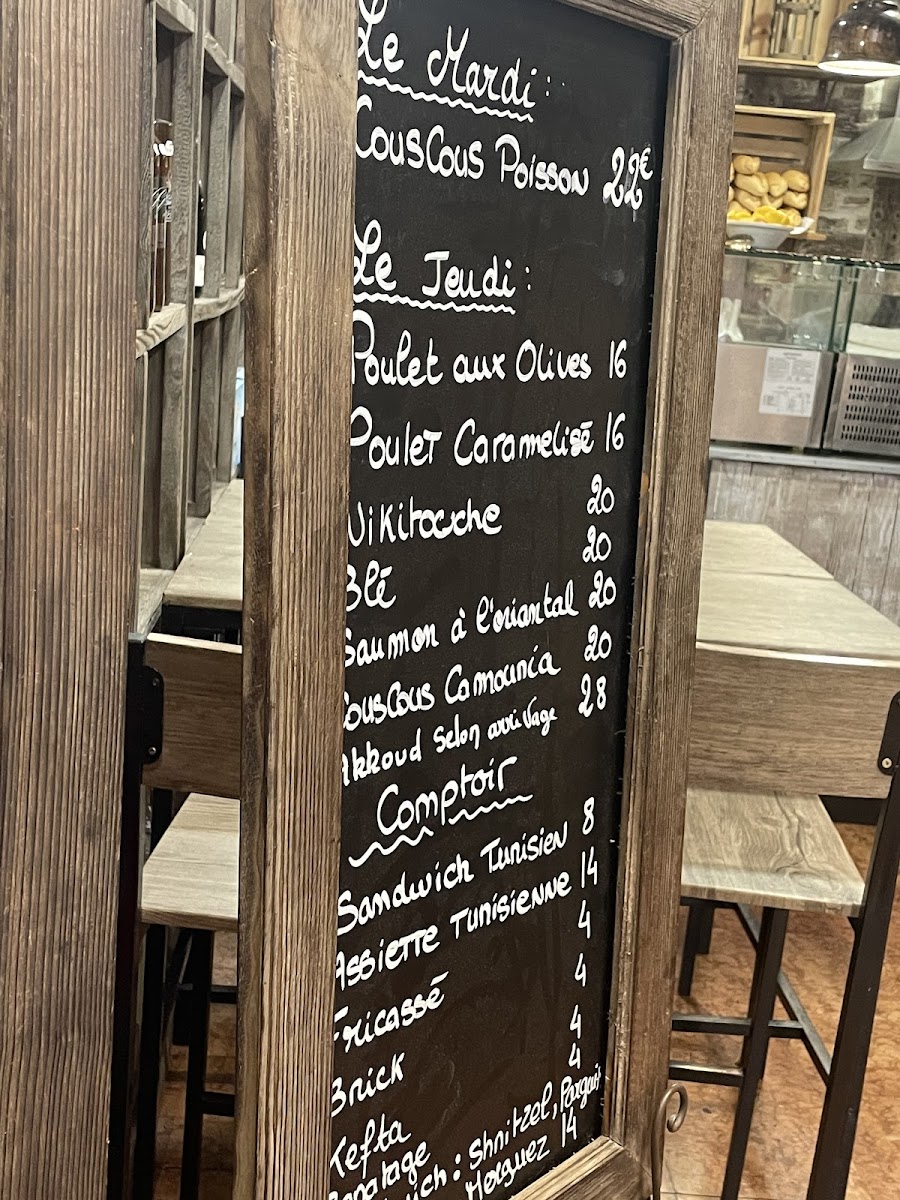 Le Mardi :
Couscous Poisson 22€
Le Jeudi :
Poulet aux Olives 16
Poulet Caramelisé 16
Nikitouche 20
Blé 20
Saumon à l'oriantal 20
Couscous Camounia 20
Akkoud Selon arrivage 28
Comptoir
Sandwich Tunisien 8
Assiette Tunisienne 14
Fricassé 4
Brick 4
Kefta 4
Banatage 4
: Shnitzel, Pargait
Merguez 14